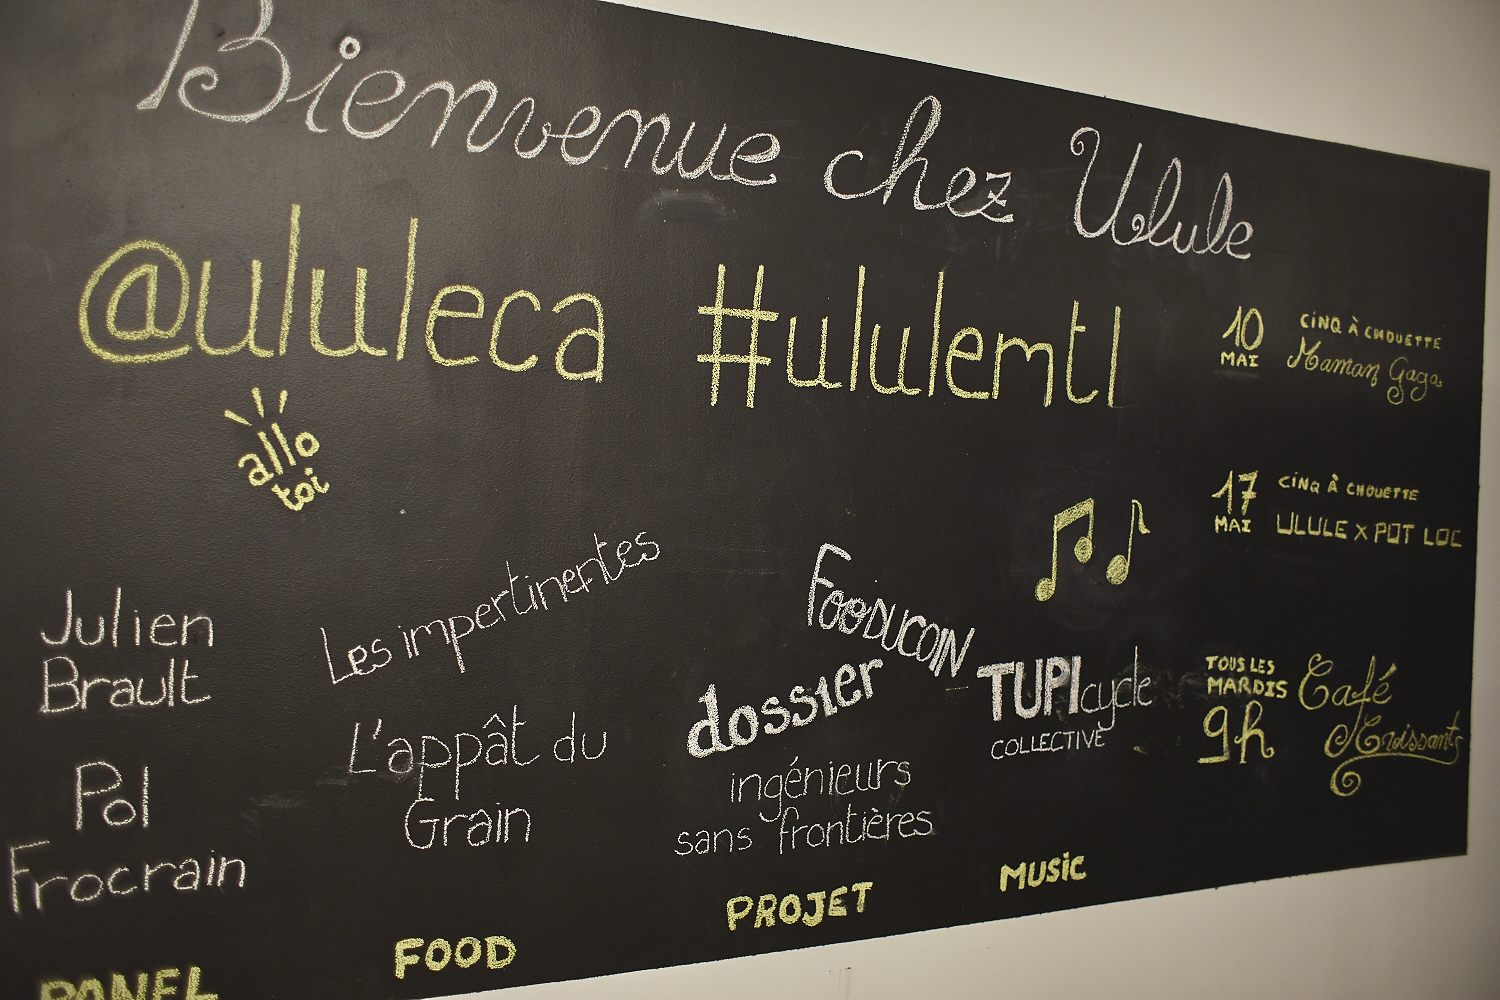 Bienvenue chez Ulule
@ululeca #ululemtl
allo
toi
10
MAI
CINQ À CHOUETTE
Maman Gaga
17
MAI
CINQ À CHOUETTE
ULULE X POT LOC
TOUS LES
MARDIS
9h
Café
Croissants
Julien
Brault
Pol
Frocrain
PANEL
Les impertinentes
L'appât du
Grain
FOOD
FOODUCOIN
dossier
ingénieurs
sans frontières
PROJET
TUPIcycle
COLLECTIVE
MUSIC